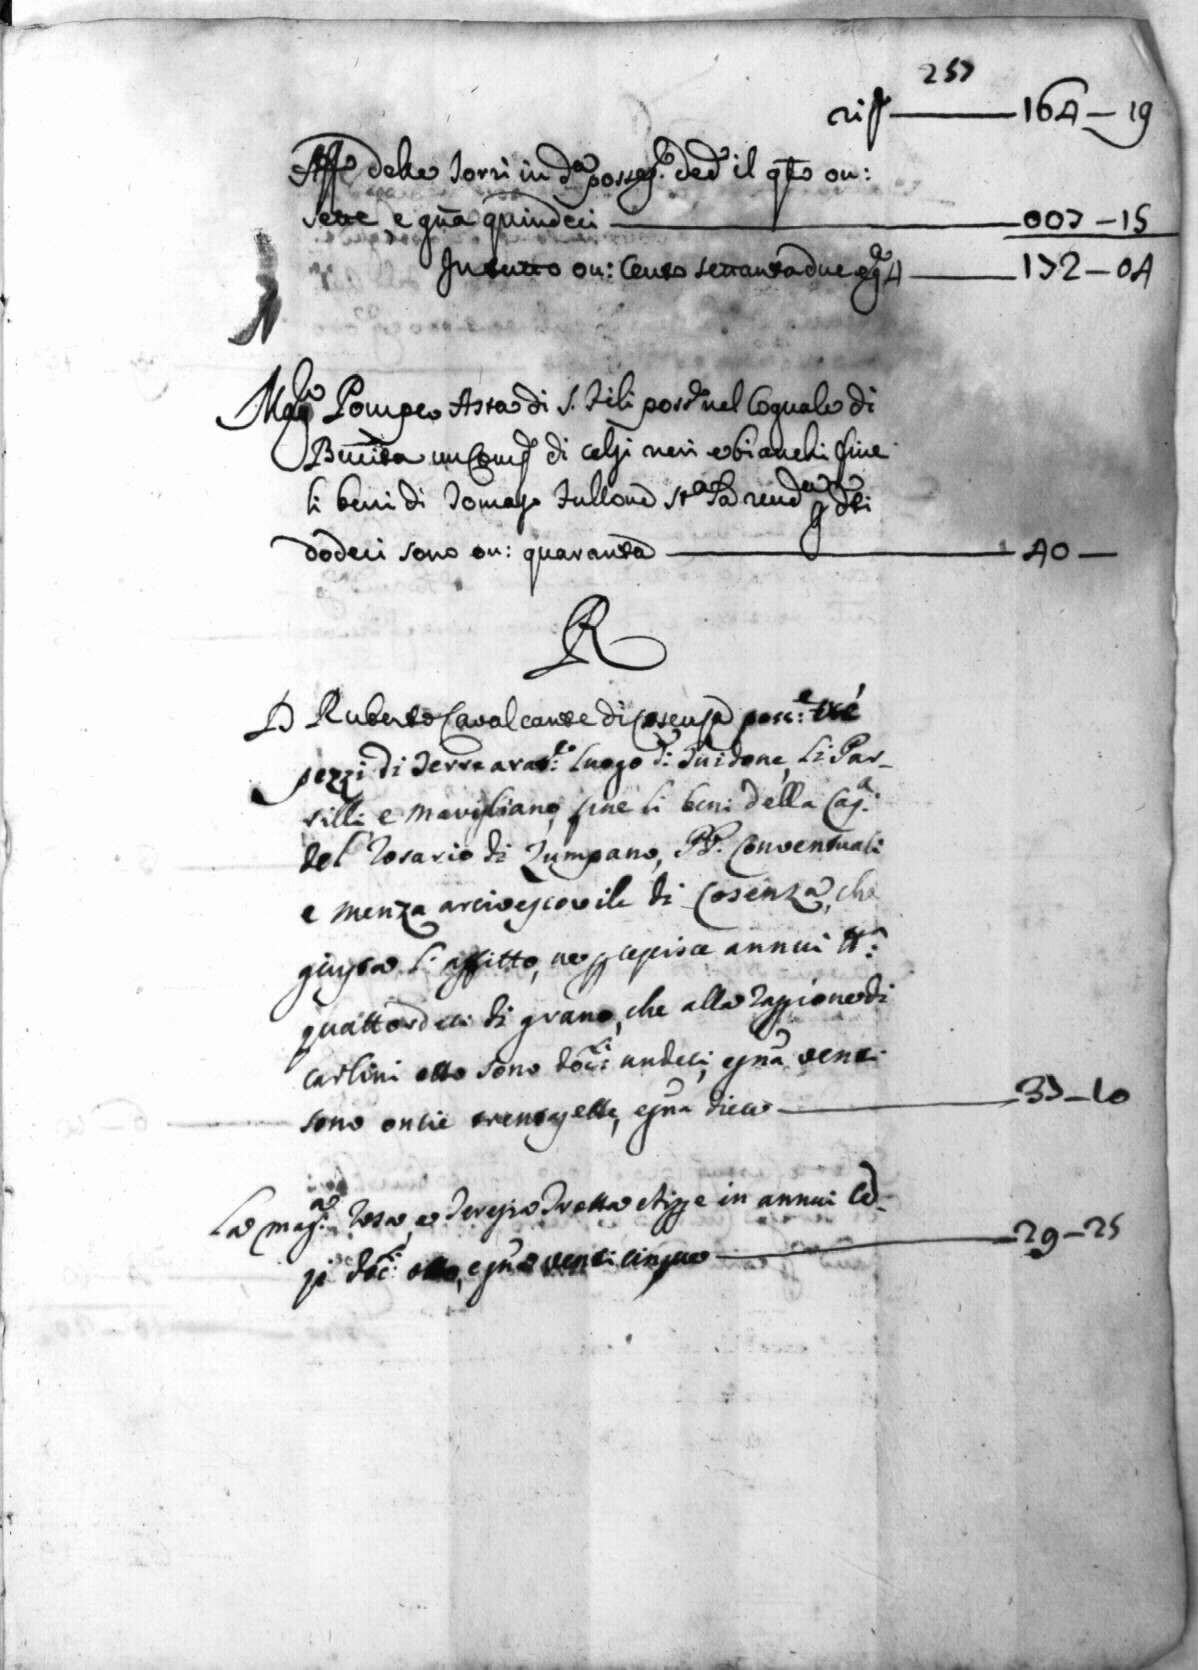 257
rip ——— 164 — 19
delle Torri in d.a possess. ded. il q.to on:
sette, e gna quindeci ——— 007 — 15
In tutto on: Cento settantadue e g.a 4 ——— 172 — 04
Mag.co Pompeo Asta di S. Fili poss.de nel loguale di
un di celsi neri e bianchi fine
li beni di Tomaso Fullone rend
dodeci sono on: quaranta ——— 40 —
R
D Ruberto Cavalcante di Cosenza poss:e tré
pezzi di Terre arat:e luogo d: Guidone, Li Par-
rilli e Marigliano, fine li beni della Cap.a
del Rosario di Zumpano, PP. Conventuali
e menza arcivescovile di Cosenza, che
giusta l' affitto, ne percepisce annui tt.a
quattordeci di grano, che alla raggione di
carlini otto sono doc:ti undeci, e gna venti
sono oncie trentasette, e gna dieci ——— 37 — 10
La mag.a Rosa, e Teresia Trotta esigge in annui Ce-
si doc:ti otto, e gna venti cinque ——— 29 — 25